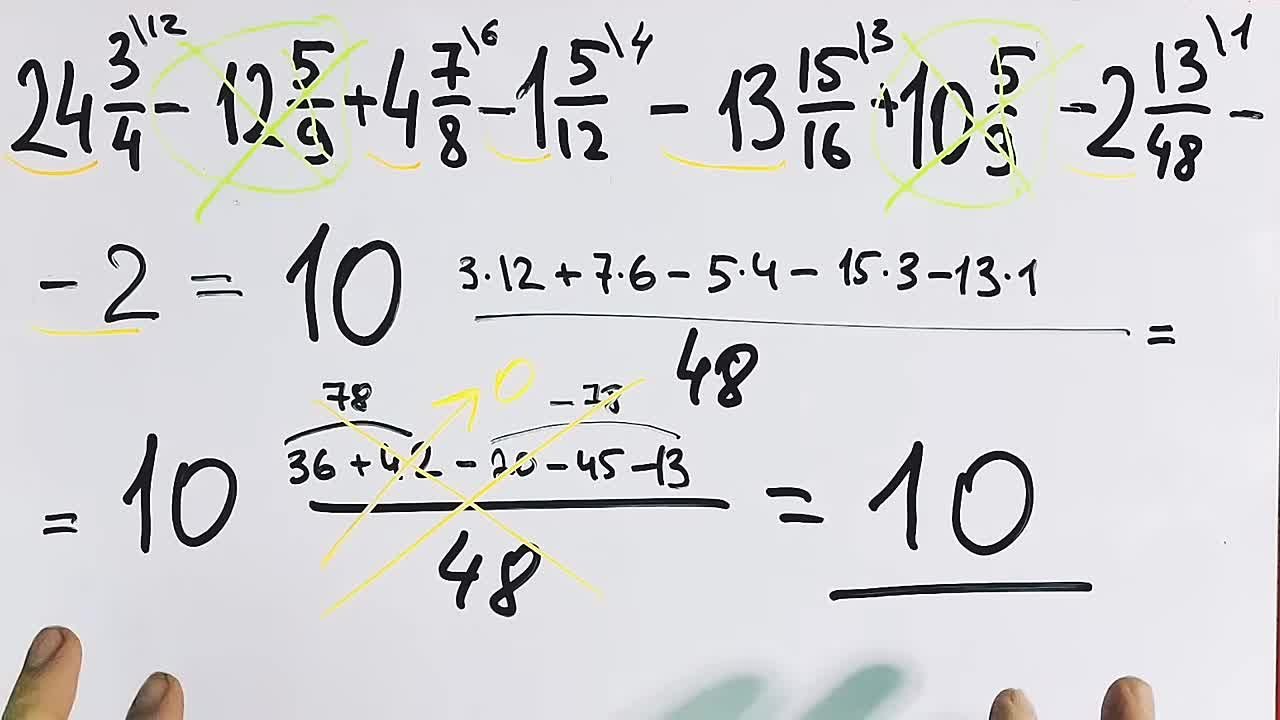 24 3/4\12 - 12 5/9 + 4 7/8\6 - 1 5/12\4 - 13 15/16\3 + 10 5/9 - 2 13/48\1 -
- 2 = 10 (3·12 + 7·6 - 5·4 - 15·3 - 13·1)/48 =
78 0 -78
= 10 (36 + 42 - 20 - 45 - 13)/48 = 10